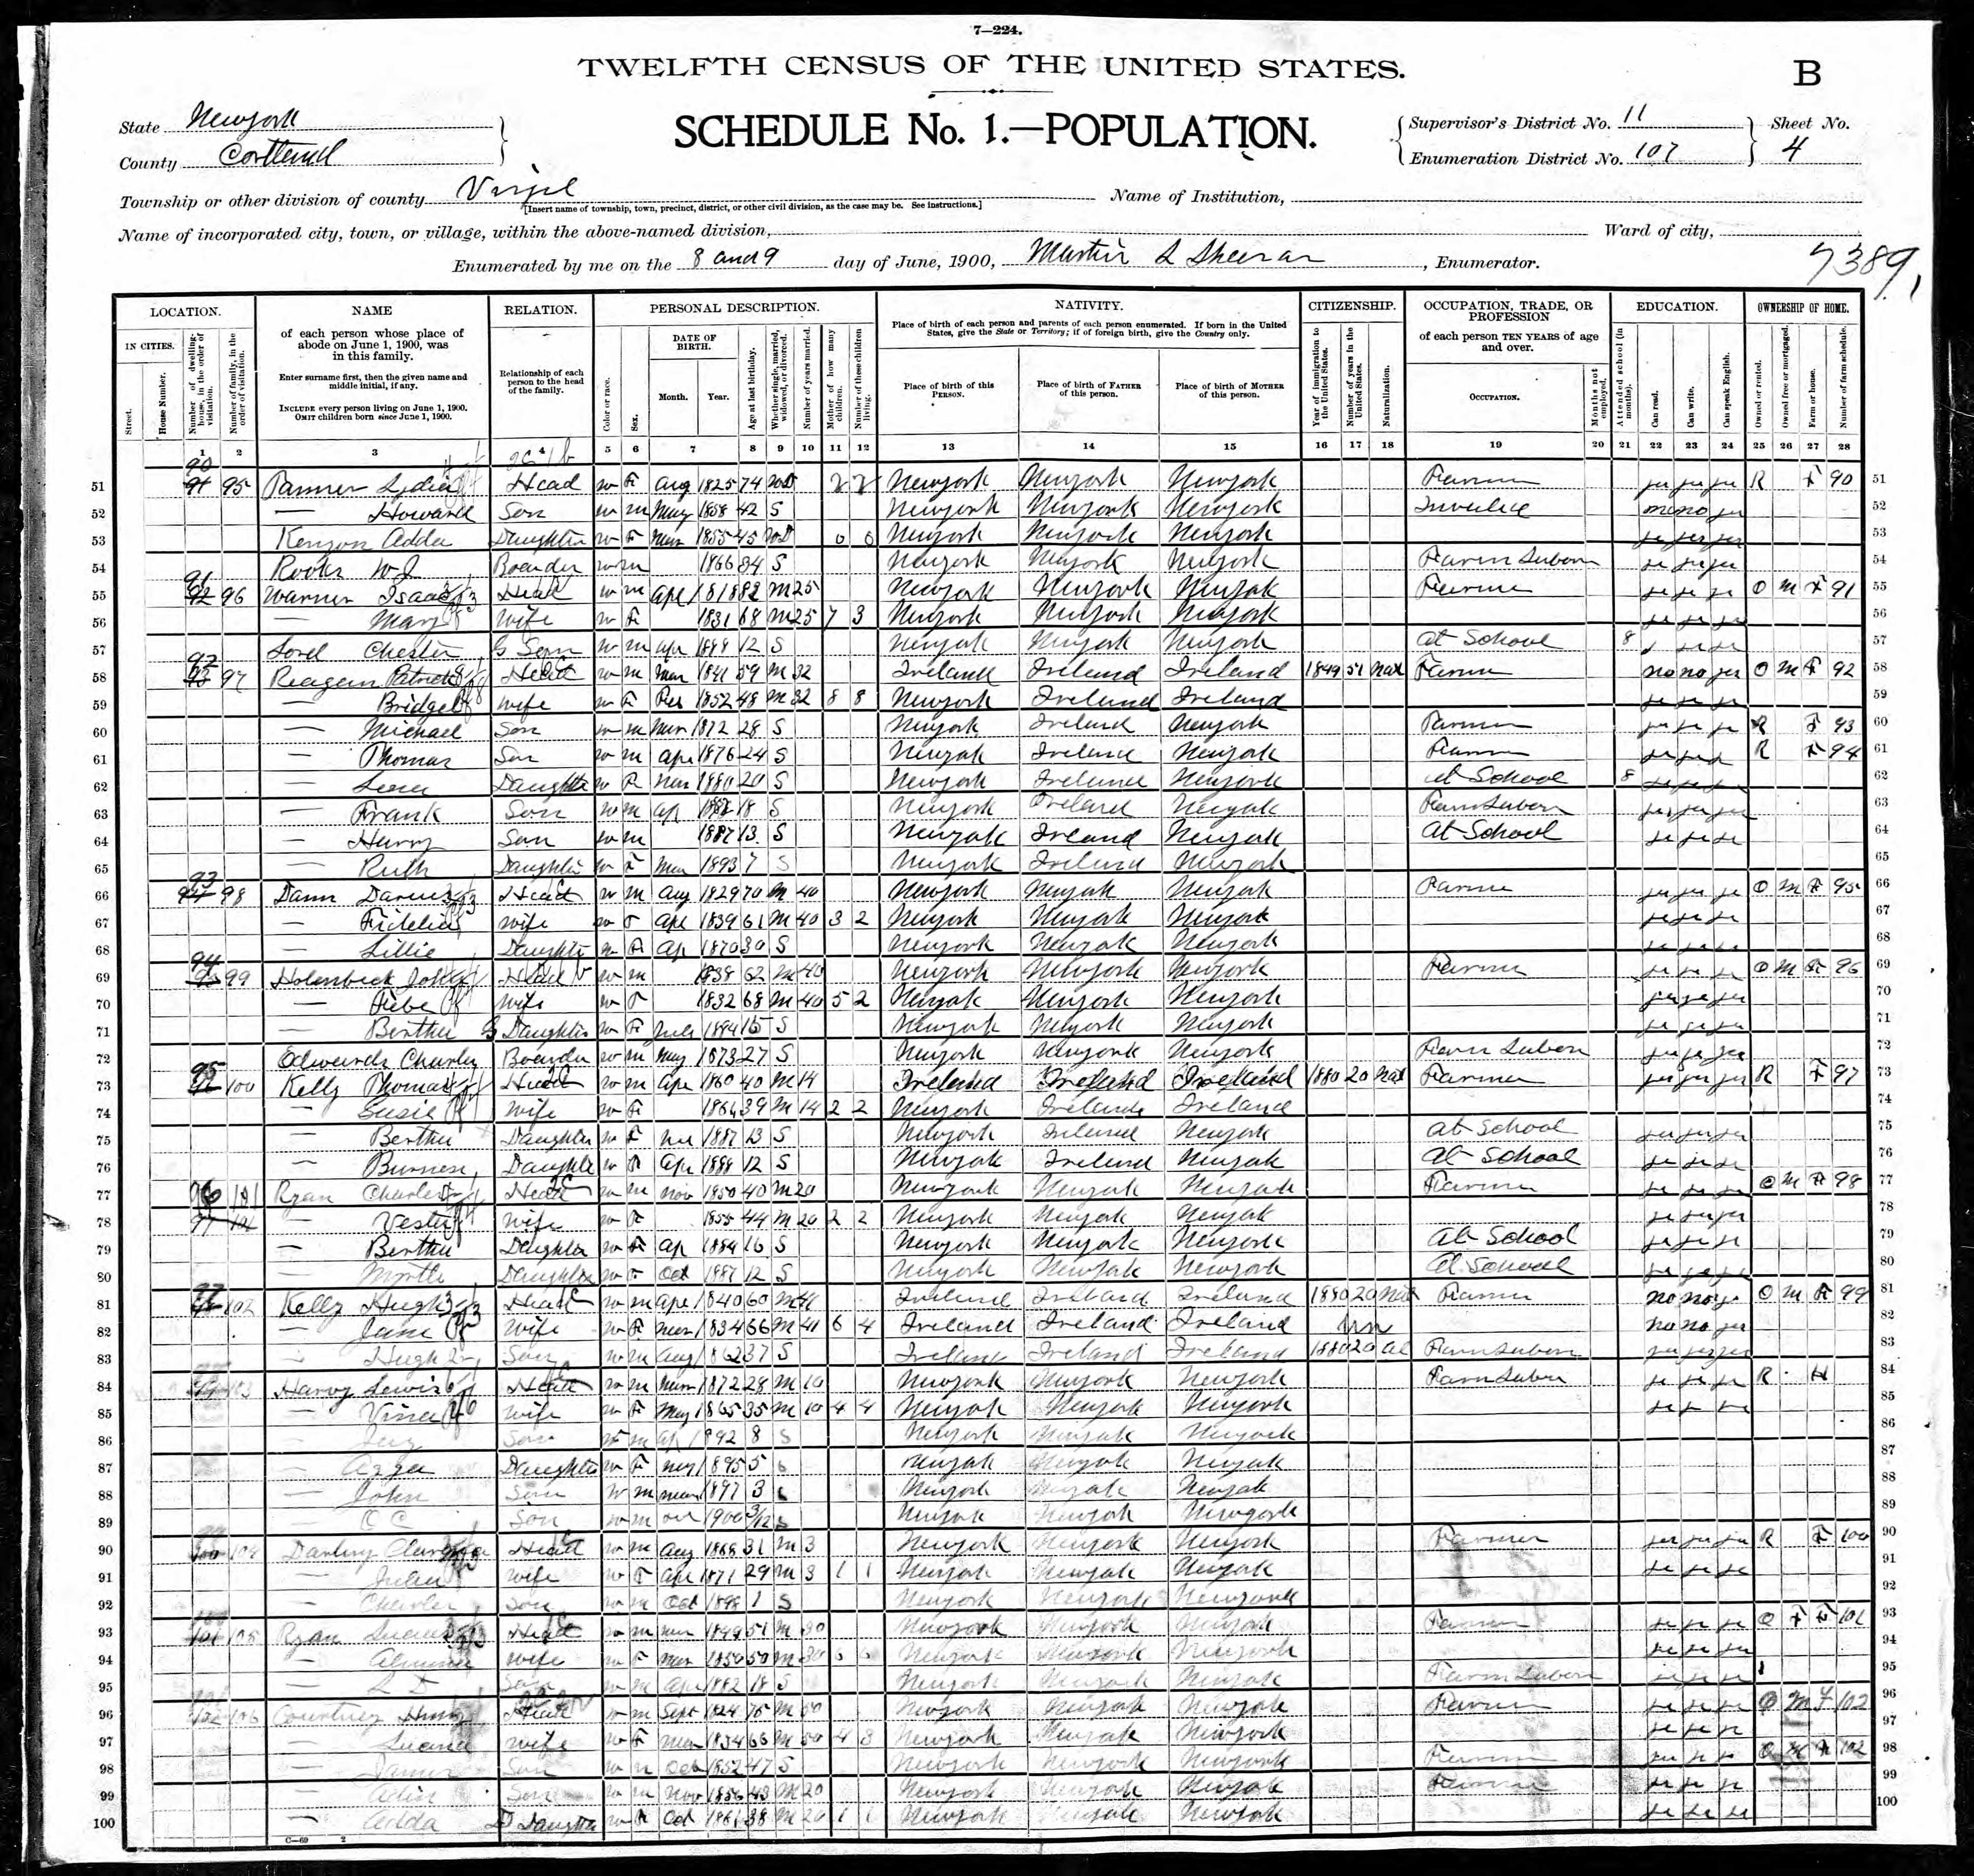 7—224.
TWELFTH CENSUS OF THE UNITED STATES.
B
State Newyork
SCHEDULE No. 1.—POPULATION.
Supervisor's District No. 11
Sheet No.
County Cortland
Enumeration District No. 107
4
Township or other division of county Virgil
[Insert name of township, town, precinct, district, or other civil division, as the case may be. See instructions.]
Name of Institution,
Name of incorporated city, town, or village, within the above-named division,
Ward of city,
Enumerated by me on the 8 and 9 day of June, 1900, Martin L Sheeran, Enumerator.
7389
LOCATION. NAME RELATION. PERSONAL DESCRIPTION. NATIVITY. CITIZENSHIP. OCCUPATION, TRADE, OR PROFESSION EDUCATION. OWNERSHIP OF HOME.
IN CITIES.
Street.
House Number.
Number of dwelling-house, in the order of visitation.
Number of family, in the order of visitation.
of each person whose place of abode on June 1, 1900, was in this family.
Enter surname first, then the given name and middle initial, if any.
INCLUDE every person living on June 1, 1900.
OMIT children born since June 1, 1900.
Relationship of each person to the head of the family.
Color or race.
Sex.
DATE OF BIRTH.
Month. Year.
Age at last birthday.
Whether single, married, widowed, or divorced.
Number of years married.
Mother of how many children.
Number of these children living.
Place of birth of each person and parents of each person enumerated. If born in the United States, give the State or Territory; if of foreign birth, give the Country only.
Place of birth of this PERSON.
Place of birth of FATHER of this person.
Place of birth of MOTHER of this person.
Year of immigration to the United States.
Number of years in the United States.
Naturalization.
of each person TEN YEARS of age and over.
OCCUPATION.
Months not employed.
Attended school (in months).
Can read.
Can write.
Can speak English.
Owned or rented.
Owned free or mortgaged.
Farm or house.
Number of farm schedule.
1 2 3 5 6 7 8 9 10 11 12 13 14 15 16 17 18 19 20 21 22 23 24 25 26 27 28
51 90 95 Lydia Head w F Aug 1825 74 Wd 2 2 Newyork Newyork Newyork Farmer yes yes yes R F 90 51
52 — Howard Son w m May 1858 42 S Newyork Newyork Newyork no no yes 52
53 Kenyon Adda Daughter w F Mar 1855 45 Wd 0 0 Newyork Newyork Newyork yes yes yes 53
54 Boarder w m 1866 34 S Newyork Newyork Newyork Farm Labor yes yes yes 54
55 91 96 Warner Isaac Head w m Apr 1818 82 M 25 Newyork Newyork Newyork Farmer yes yes yes O M F 91 55
56 — Mary Wife w F 1831 68 M 25 7 3 Newyork Newyork Newyork yes yes yes 56
57 Chester G Son w m Apr 1888 12 S Newyork Newyork Newyork At School 8 yes yes 57
58 92 97 Reagan Patrick Head w m Mar 1841 59 M 32 Ireland Ireland Ireland 1849 51 Nat Farmer no no yes O M F 92 58
59 — Bridget Wife w F Feb 1852 48 M 32 8 8 Newyork Ireland Ireland yes yes yes 59
60 — Michael Son w m Mar 1872 28 S Newyork Ireland Newyork Farmer yes yes yes R F 93 60
61 — Thomas Son w m Apr 1876 24 S Newyork Ireland Newyork Farmer yes yes yes R F 94 61
62 — Daughter w F Mar 1880 20 S Newyork Ireland Newyork At School 8 yes yes yes 62
63 — Frank Son w m Ap 1882 18 S Newyork Ireland Newyork Farm Labor yes yes yes 63
64 — Harry Son w m 1887 13 S Newyork Ireland Newyork At School yes yes yes 64
65 — Ruth Daughter w F Mar 1893 7 S Newyork Ireland Newyork 65
66 93 98 Dann Darius Head w m Aug 1829 70 M 40 Newyork Newyork Newyork Farmer yes yes yes O M F 95 66
67 — Fidelia Wife w F Apr 1839 61 M 40 3 2 Newyork Newyork Newyork yes yes yes 67
68 — Lillie Daughter w F Ap 1870 30 S Newyork Newyork Newyork yes yes yes 68
69 94 99 Holenbeck John Head w m 1838 62 M 40 Newyork Newyork Newyork Farmer yes yes yes O M F 96 69
70 — Wife w F 1832 68 M 40 5 2 Newyork Newyork Newyork yes yes yes 70
71 — Bertha G Daughter w F 1884 15 S Newyork Newyork Newyork yes yes yes 71
72 Edwards Charley Boarder w m May 1873 27 S Newyork Newyork Newyork Farm Labor yes yes yes 72
73 95 100 Kelly Thomas Head w m Apr 1860 40 M 14 Ireland Ireland Ireland 1880 20 Nat Farmer yes yes yes R F 97 73
74 — Susie Wife w F 1861 39 M 14 2 2 Newyork Ireland Ireland 74
75 — Bertha Daughter w F 1887 13 S Newyork Ireland Newyork At School yes yes yes 75
76 — Daughter w F Apr 1888 12 S Newyork Ireland Newyork At School yes yes yes 76
77 96 101 Ryan Charles Head w m Nov 1850 40 M 20 Newyork Newyork Newyork Farmer yes yes yes O M F 98 77
78 — Vesta Wife w F 1855 44 M 20 2 2 Newyork Newyork Newyork yes yes yes 78
79 — Bertha Daughter w F Ap 1884 16 S Newyork Newyork Newyork At School yes yes yes 79
80 — Myrtle Daughter w F Oct 1887 12 S Newyork Newyork Newyork At School yes yes yes 80
81 97 102 Kelly Hugh Head w m Apr 1840 60 M 41 Ireland Ireland Ireland 1880 20 Nat Farmer no no yes O M F 99 81
82 — Jane Wife w F Mar 1834 66 M 41 6 4 Ireland Ireland Ireland Un no no yes 82
83 — Hugh Jr Son w m Aug 1862 37 S Ireland Ireland Ireland 1880 20 Al Farm Labor yes yes yes 83
84 103 Harvy Lewis Head w m Mar 1872 28 M 10 Newyork Newyork Newyork Farm Labor yes yes yes R H 84
85 — Vina Wife w F May 1865 35 M 10 4 4 Newyork Newyork Newyork yes yes yes 85
86 — Son w m Ap 1892 8 S Newyork Newyork Newyork 86
87 — Azza Daughter w F May 1895 5 S Newyork Newyork Newyork 87
88 — John Son w m Mar 1897 3 S Newyork Newyork Newyork 88
89 — O C Son w m 1900 3/12 S Newyork Newyork Newyork 89
90 104 Head w m Aug 1868 31 M 3 Newyork Newyork Newyork Farmer yes yes yes R F 100 90
91 — Julia Wife w F Apr 1871 29 M 3 1 1 Newyork Newyork Newyork yes yes yes 91
92 — Charles Son w m Oct 1898 1 S Newyork Newyork Newyork 92
93 105 Ryan Head w m Mar 1849 51 M 30 Newyork Newyork Newyork Farmer yes yes yes O F F 101 93
94 — Wife w F Mar 1850 50 M 30 Newyork Newyork Newyork yes yes yes 94
95 — L D Son w m Apr 1882 18 S Newyork Newyork Newyork Farm Labor yes yes yes 95
96 106 Courtney Head w m Sept 1824 75 M 50 Newyork Newyork Newyork Farmer yes yes yes O M F 102 96
97 — Wife w F Mar 1834 66 M 50 4 3 Newyork Newyork Newyork yes yes yes 97
98 — Son w m Oct 1852 47 S Newyork Newyork Newyork Farmer yes yes yes 102 98
99 — Son w m Nov 1856 43 M 20 Newyork Newyork Newyork yes yes yes 99
100 — Adda D Daughter w F Oct 1861 38 M 20 1 1 Newyork Newyork Newyork yes yes yes 100
C—69 2